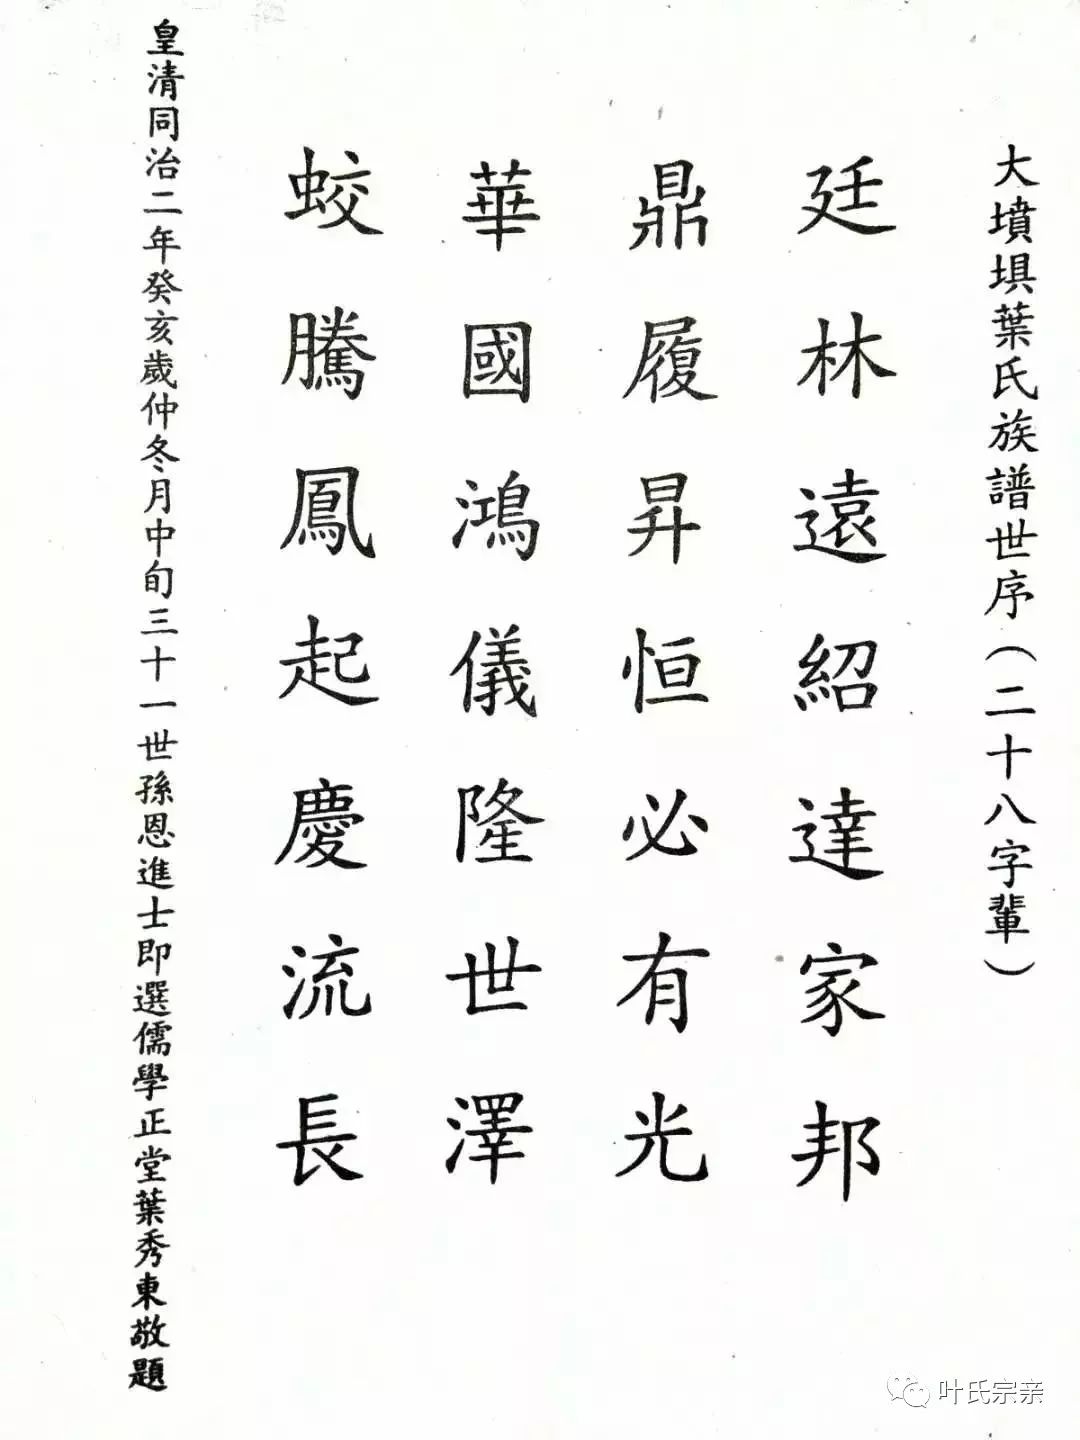 大墳埧葉氏族譜世序（二十八字輩）
廷林遠紹達家邦
鼎履昇恒必有光
華國鴻儀隆世澤
蛟騰鳳起慶流長
皇清同治二年癸亥歲仲冬月中旬三十一世孫恩進士即選儒學正堂葉秀東敬題
叶氏宗亲